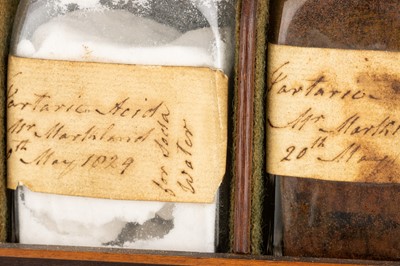 Tartaric Acid
Mr Markland
May 1829
for Soda
Water
Tartaric
Mr
20th May